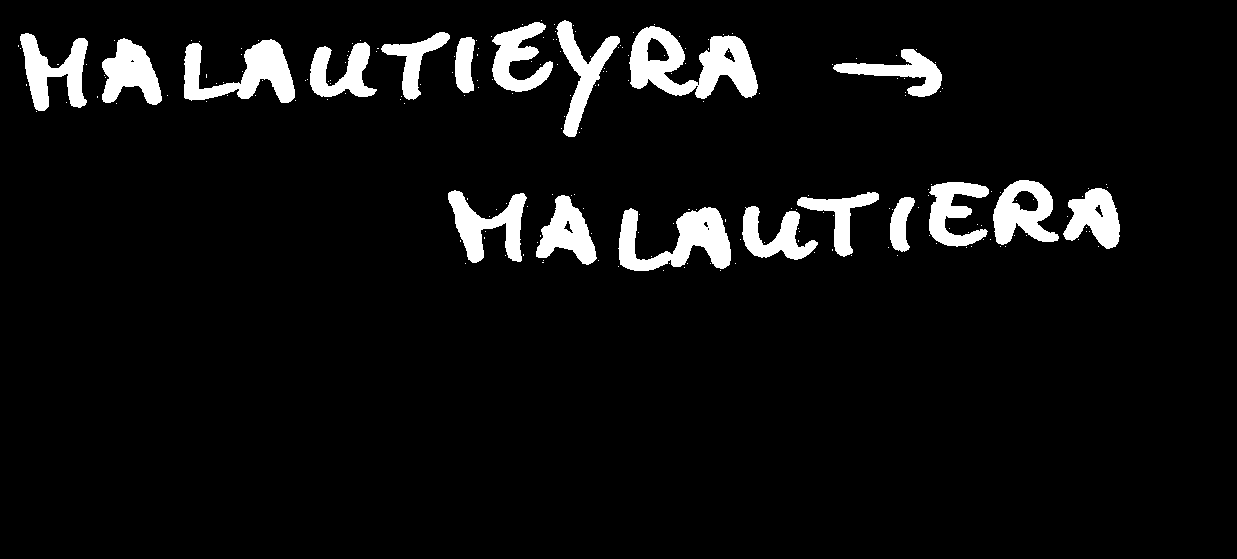 MALAUTIEYRA →
MALAUTIERA